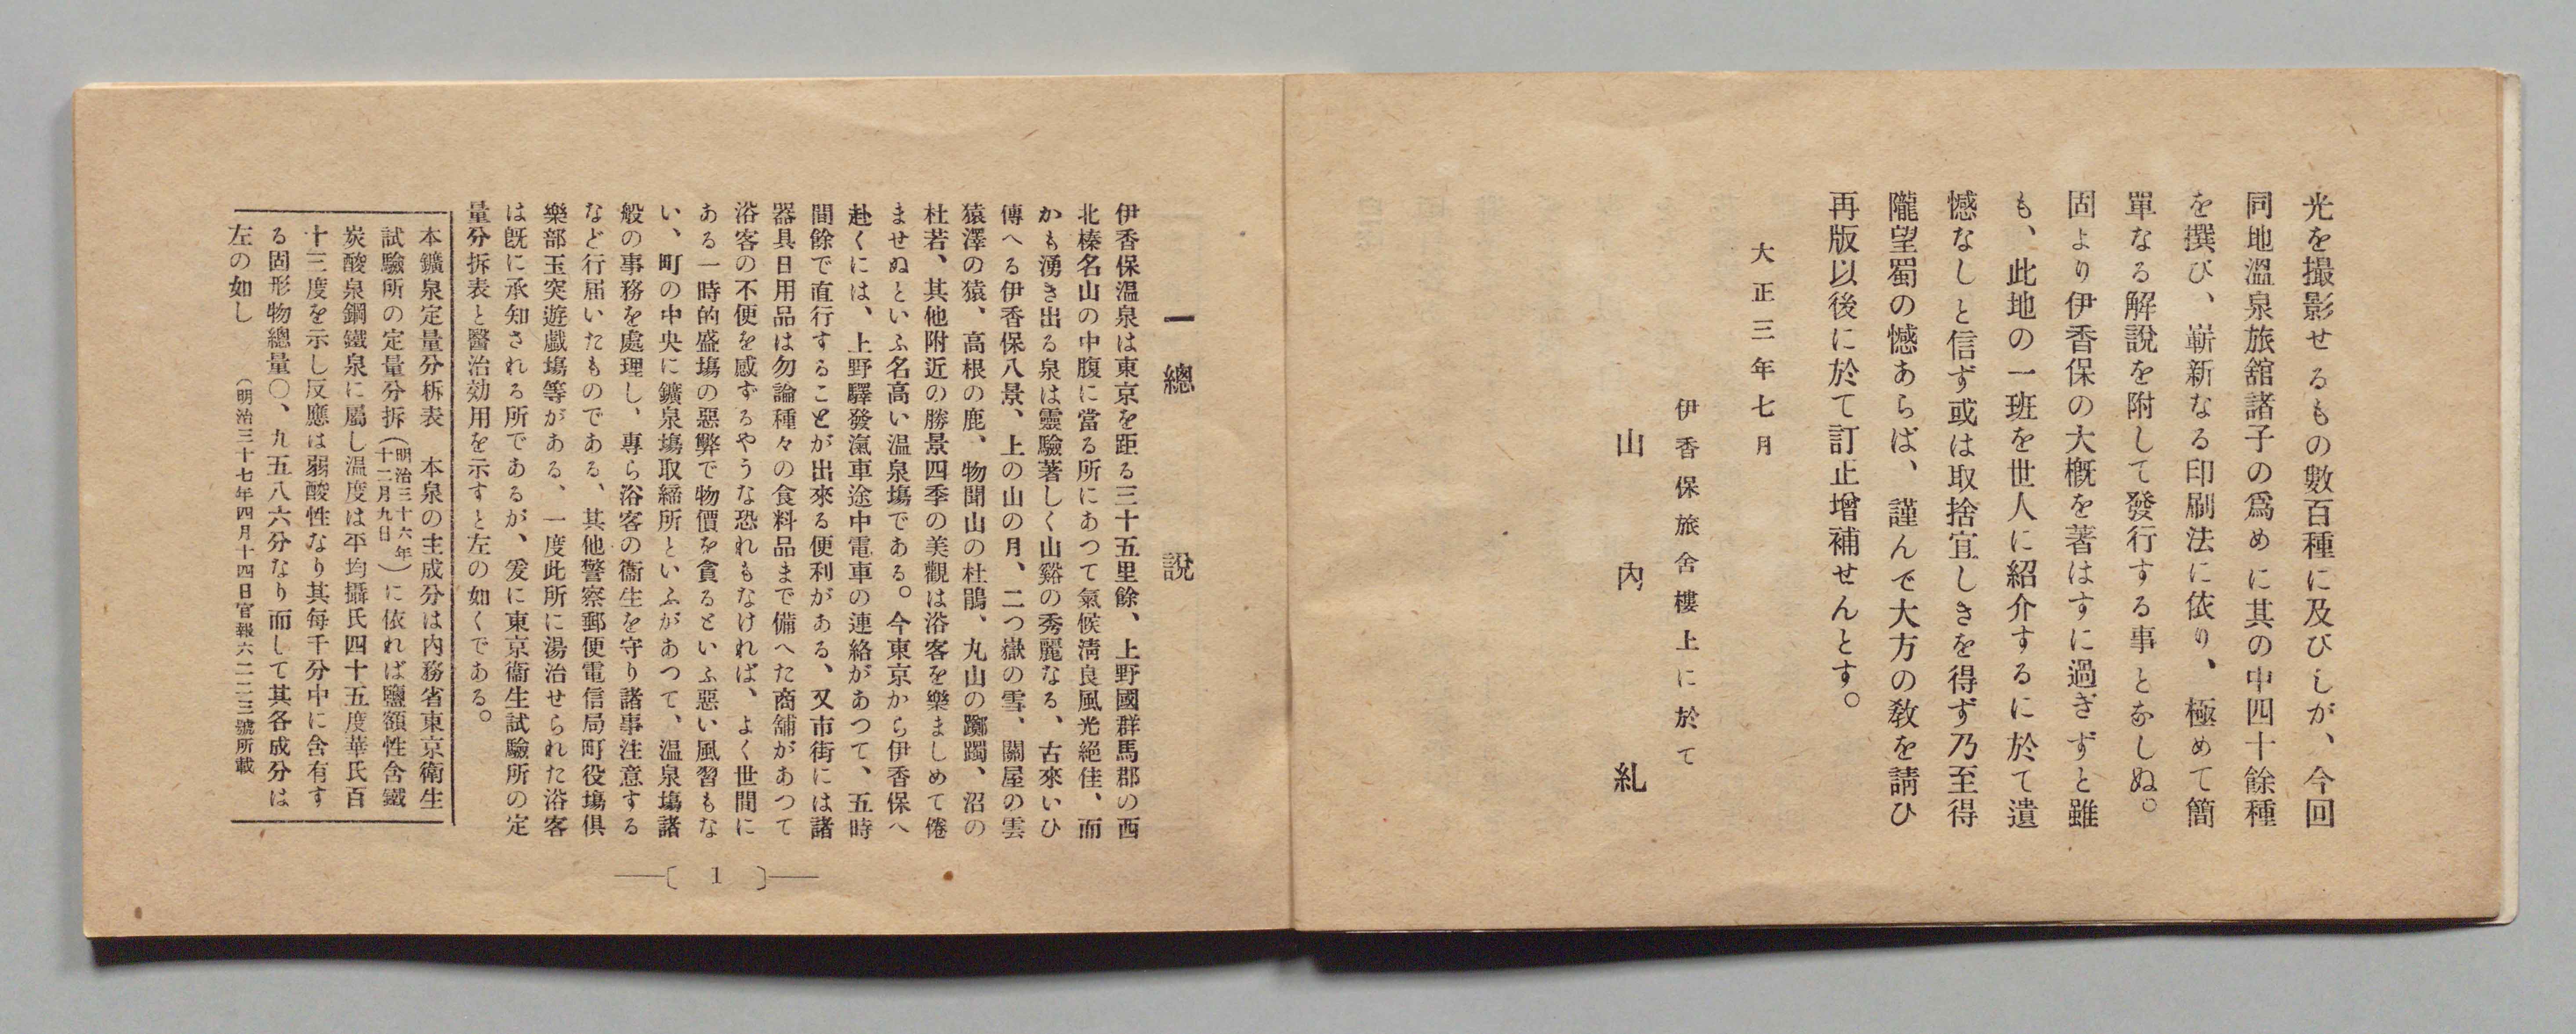 光を撮影せるもの數百種に及びしが、今回
同地溫泉旅舘諸子の爲めに其の中四十餘種
を撰び、嶄新なる印刷法に依り、極めて簡
單なる解說を附して發行する事となしぬ。
固より伊香保の大槪を著はすに過ぎずと雖
も、此地の一班を世人に紹介するに於て遺
憾なしと信ず或は取捨宜しきを得ず乃至得
隴望蜀の憾あらば、謹んで大方の敎を請ひ
再版以後に於て訂正增補せんとす。
大正三年七月
伊香保旅舍樓上に於て
山內糺
一總說
伊香保溫泉は東京を距る三十五里餘、上野國群馬郡の西
北榛名山の中腹に當る所にあつて氣候淸良風光絕佳、而
かも湧き出る泉は靈驗著しく山谿の秀麗なる、古來いひ
傳へる伊香保八景、上の山の月、二つ嶽の雪、關屋の雲
猿澤の猿、高根の鹿、物聞山の杜鵑、丸山の躑躅、沼の
杜若、其他附近の勝景四季の美觀は浴客を樂ましめて倦
ませぬといふ名高い溫泉塲である。今東京から伊香保へ
赴くには、上野驛發滊車途中電車の連絡があつて、五時
間餘で直行することが出來る便利がある、又市街には諸
器具日用品は勿論種々の食料品まで備へた商舖があつて
浴客の不便を感ずるやうな恐れもなければ、よく世間に
ある一時的盛塲の惡弊で物價を貪るといふ惡い風習もな
い、町の中央に鑛泉塲取締所といふがあつて、溫泉塲諸
般の事務を處理し、專ら浴客の衞生を守り諸事注意する
など行届いたものである、其他警察郵便電信局町役塲俱
樂部玉突遊戲塲等がある、一度此所に湯治せられた浴客
は旣に承知される所であるが、爰に東京衞生試驗所の定
量分拆表と醫治効用を示すと左の如くである。
本鑛泉定量分柝表　本泉の主成分は內務省東京衛生
試驗所の定量分拆（明治三十六年十二月九日）に依れば鹽額性含鐵
炭酸泉鋼鐵泉に屬し溫度は平均攝氏四十五度華氏百
十三度を示し反應は弱酸性なり其每千分中に含有す
る固形物總量〇、九五八六分なり而して其各成分は
左の如し　（明治三十七年四月十四日官報六二二三號所載
〔1〕